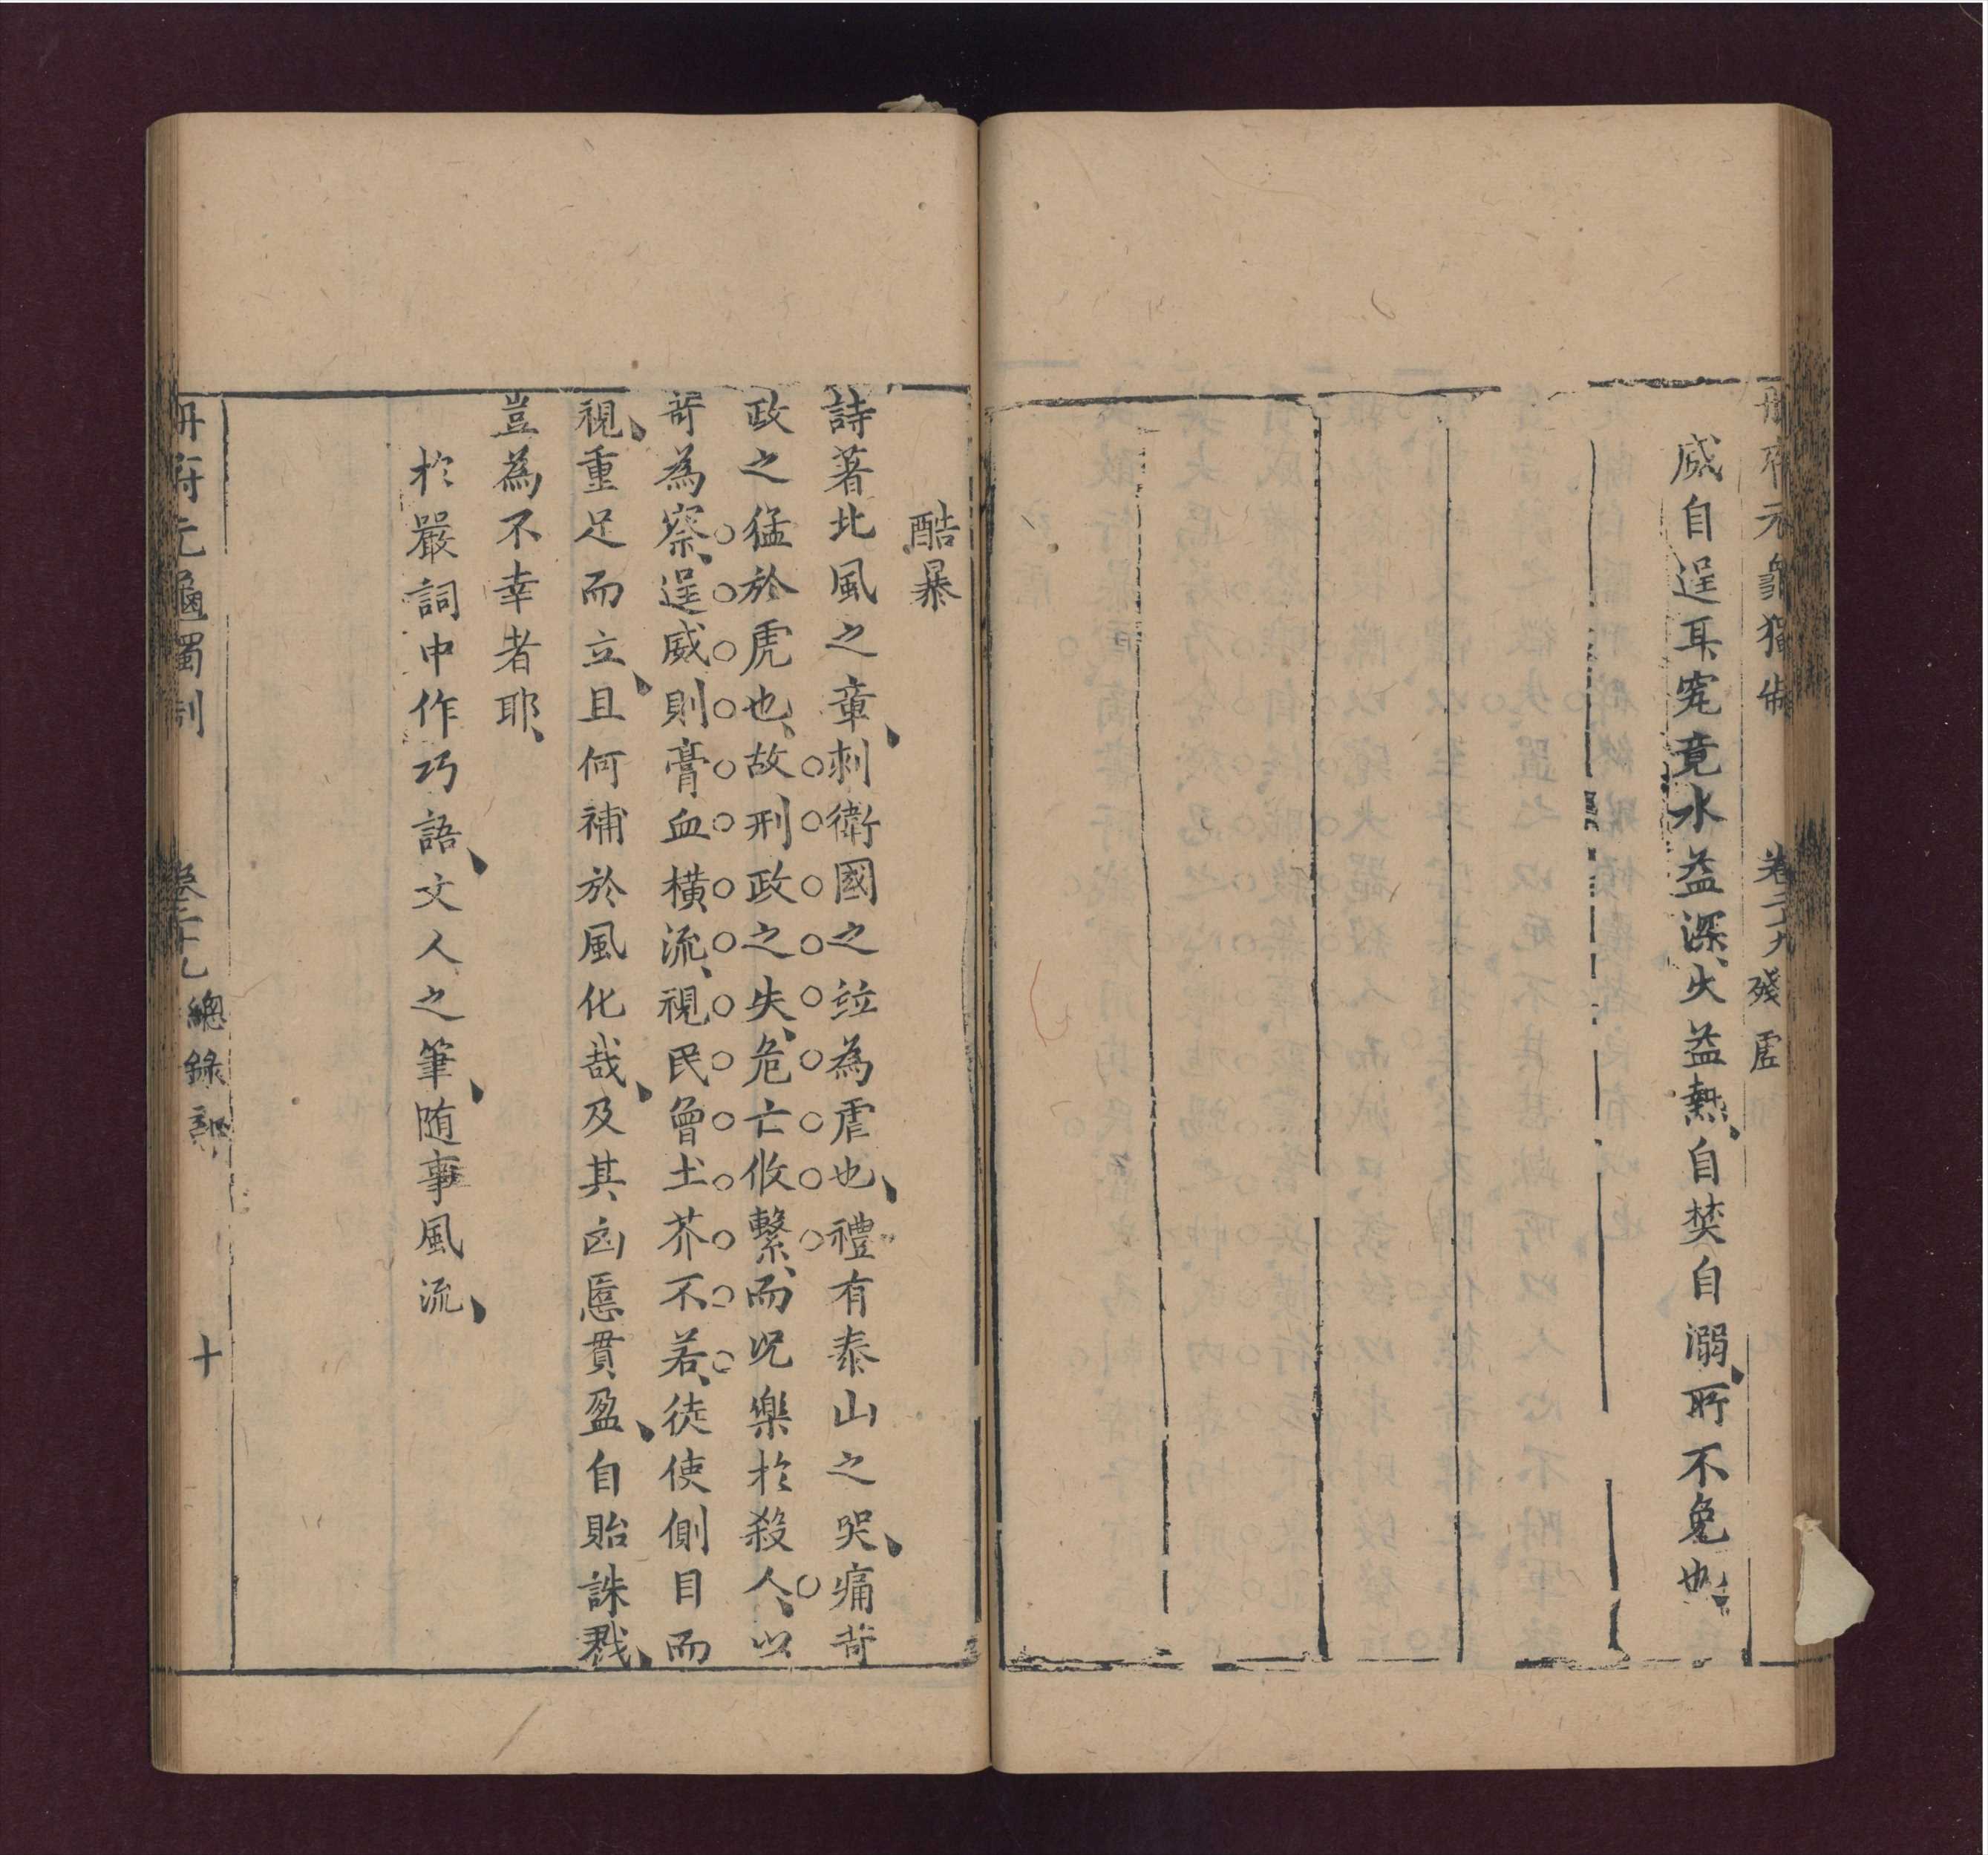 冊府元龜獨制 卷二十九 殘虐
威自逞耳究竟水益深火益熱自焚自溺所不免也
酷暴
詩著北風之章刺衛國之竝為虐也禮有泰山之哭痛苛
政之猛於虎也故刑政之失危亡攸繫而况樂於殺人以
苛為察逞威則膏血橫流視民曾土芥不若徒使側目而
視重足而立且何補於風化哉及其凶慝貫盈自貽誅戮
豈為不幸者耶
於嚴詞中作巧語文人之筆随事風流
冊府元龜獨制 卷二十九 總錄部 十